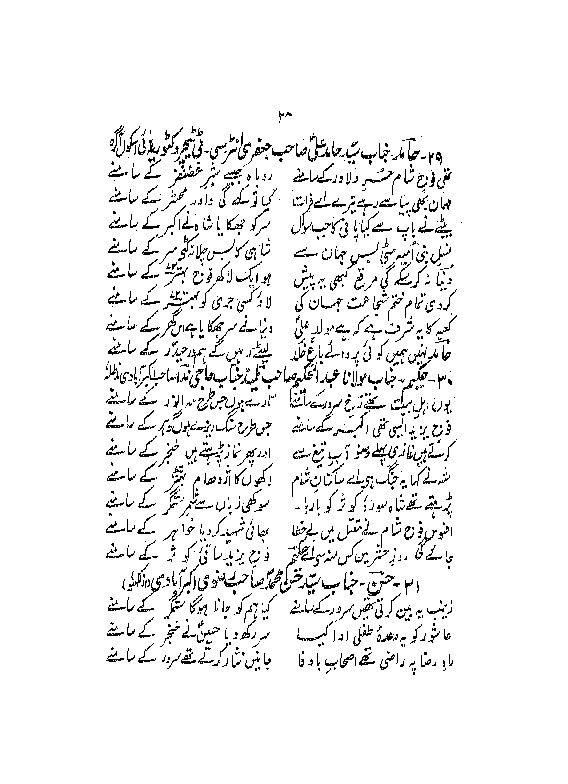 ۲۸
۲۹۔ حامد۔ جناب سید حامد علی صاحب جعفری انٹرسی۔ ٹی ٹیچر وکٹوریہ ہائی اسکول آگرہ
تھی فوج شام حیدر دلاور کے سامنے روباہ جیسے شیر غضنفر کے سامنے
مہمان بھی پیاسے رہے تیرے اے فرات کیا تو کہے گی داور محشر کے سامنے
بیٹے نے باپ سے کیا پانی کا جب سوال سر کو جھکایا شاہ نے اکبر کے سامنے
نسل بنی امیہ مٹی بس جہان سے شاہی کا بس چلا نہ کٹے سر کے سامنے
دنیا نہ کر سکے گی مرقع کبھی یہ پیش ہو ایک لاکھ فوج بہتر کے سامنے
کر دی تمام ختم شجاعت جہان کی لاؤ کسی جری کو بہتر کے سامنے
کعبہ کا یہ شرف ہے کہ ہے مولد علی دنیا نے سر جھکایا ہے اس گھر کے سامنے
حامد نہیں ہمیں کوئی پروائے باغ خلد لیٹے رہیں گے ہم در حیدر کے سامنے
۳۰۔ حکیم۔ جناب مولانا عبد الحکیم صاحب تلمیذ جناب حاجی صاحب اکبر آبادی
یوں اہل بیت تھے رخ سرور کے سامنے تارے ہوں جس طرح مہ انور کے سامنے
فوج یزید ایسی تھی اکبر کے سامنے جس طرح سنگ ریزے ہوں گوہر کے سامنے
کرتے ہیں غازی پہلے وضو آب تیغ سے اور پھر نماز پڑھتے ہیں خنجر کے سامنے
شہ نے کہا یہ جنگ ہی اے ساکنان شام لاکھوں کا اژدہام بہتر کے سامنے
پڑھتے تھے شاہ سورۂ کوثر کو بار بار سوکھی زباں سے شمر ستمگر کے سامنے
افسوس فوج شام نے مقتل میں بے خطا بھائی شہید کر دیا خواہر کے سامنے
جائے گی روز حشر میں کس منہ سے اے حکیم فوج یزید ساقئ کوثر کے سامنے
۳۱۔ جناب سید محمد صاحب رضوی اکبر آبادی
زینب یہ بین کرتی تھیں سرور کے سامنے کیا ہم کو جانا ہوگا ستمگر کے سامنے
عاشور کو یہ وعدۂ طفلی ادا کیا سر رکھ دیا حسین نے خنجر کے سامنے
راہ رضا پہ راضی تھے اصحاب با وفا جانیں نثار کرتے تھے سرور کے سامنے